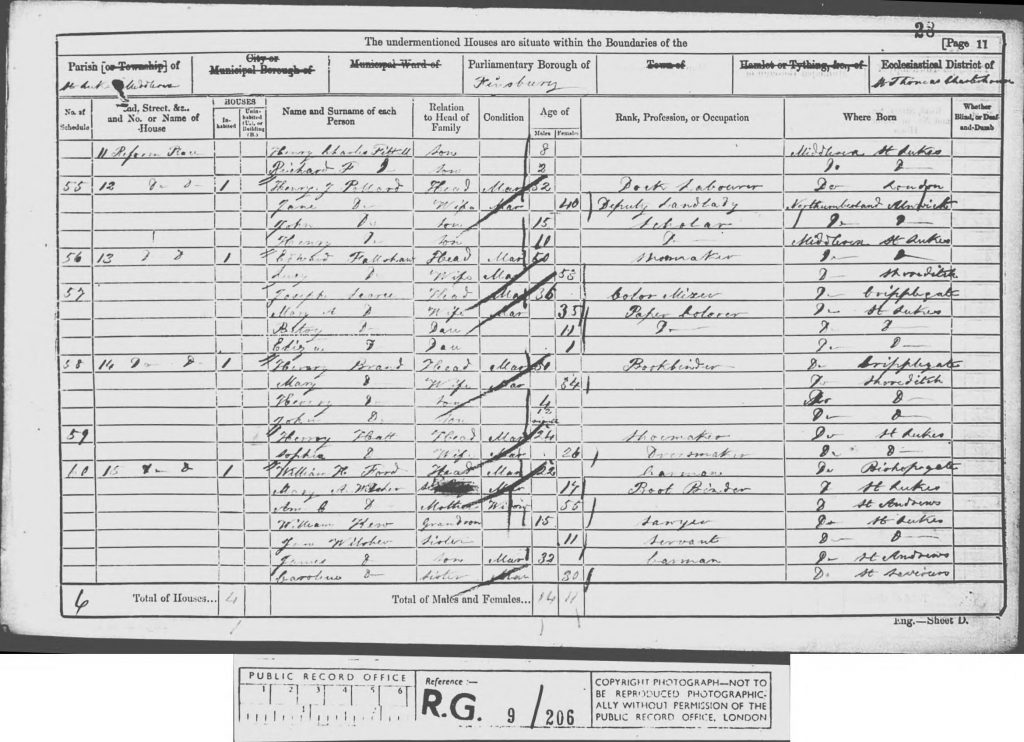 28
The undermentioned Houses are situate within the Boundaries of the [Page 11
Parish [or Township] of City or Municipal Borough of Municipal Ward of Parliamentary Borough of Town of Hamlet or Tything, &c., of Ecclesiastical District of
Finsbury St Thomas Charterhouse
No. of Schedule Road, Street, &c., and No. or Name of House HOUSES Inhabited Uninhabited (U.), or Building (B.) Name and Surname of each Person Relation to Head of Family Condition Age of Males Females Rank, Profession, or Occupation Where Born Whether Blind, or Deaf-and-Dumb
11 Reform Row Henry Charles son 8 Middlesex St Lukes
Richard F D son 2 Do D
55 12 Do Do 1 Henry J Pollard Head Mar 52 Dock Labourer Do London
Jane Do Wife Mar 40 Deputy Landlady Northumberland Alnwick
John Do son 15 Scholar Do D
Henry Do son 11 D Middlesex St Lukes
56 13 D D 1 Edward Fallshaw Head Mar 50 Shoemaker Do D
Lucy D Wife Mar 53 D Shoreditch
57 Joseph Head Mar 36 Color Mixer Do Cripplegate
Mary A D Wife Mar 35 Paper Colorer Do St Lukes
Betsy Do Dau 11 Do D D
D Dau 1 Do D
58 14 Do D 1 Henry Brand Head Mar 30 Bookbinder Do Cripplegate
Mary D Wife Mar 34 Do Shoreditch
Henry D son 4 Do D
John Do son Do D
59 Henry Hatt Head Mar 24 Shoemaker Do St Lukes
Sophia D Wife Mar 26 Dressmaker Do D
60 15 Do D 1 William H Ford Head Mar 22 Carman Do Bishopsgate
Mary A Wilsher Mar 17 Boot Binder D St Lukes
Ann D Mother Widow 55 D St Andrews
William Hew Grandson 15 Sawyer Do St Lukes
Jane Wilsher Sister 11 Servant Do D
James D son Mar 32 Carman Do St Andrews
Caroline D Sister Mar 30 Do St Saviours
4 Total of Houses... 4 Total of Males and Females... 14 11
Eng.—Sheet D.
PUBLIC RECORD OFFICE
1 2 3 4 5 6
Reference :—
R.G. 9 / 206
COPYRIGHT PHOTOGRAPH—NOT TO
BE REPRODUCED PHOTOGRAPHIC-
ALLY WITHOUT PERMISSION OF THE
PUBLIC RECORD OFFICE, LONDON